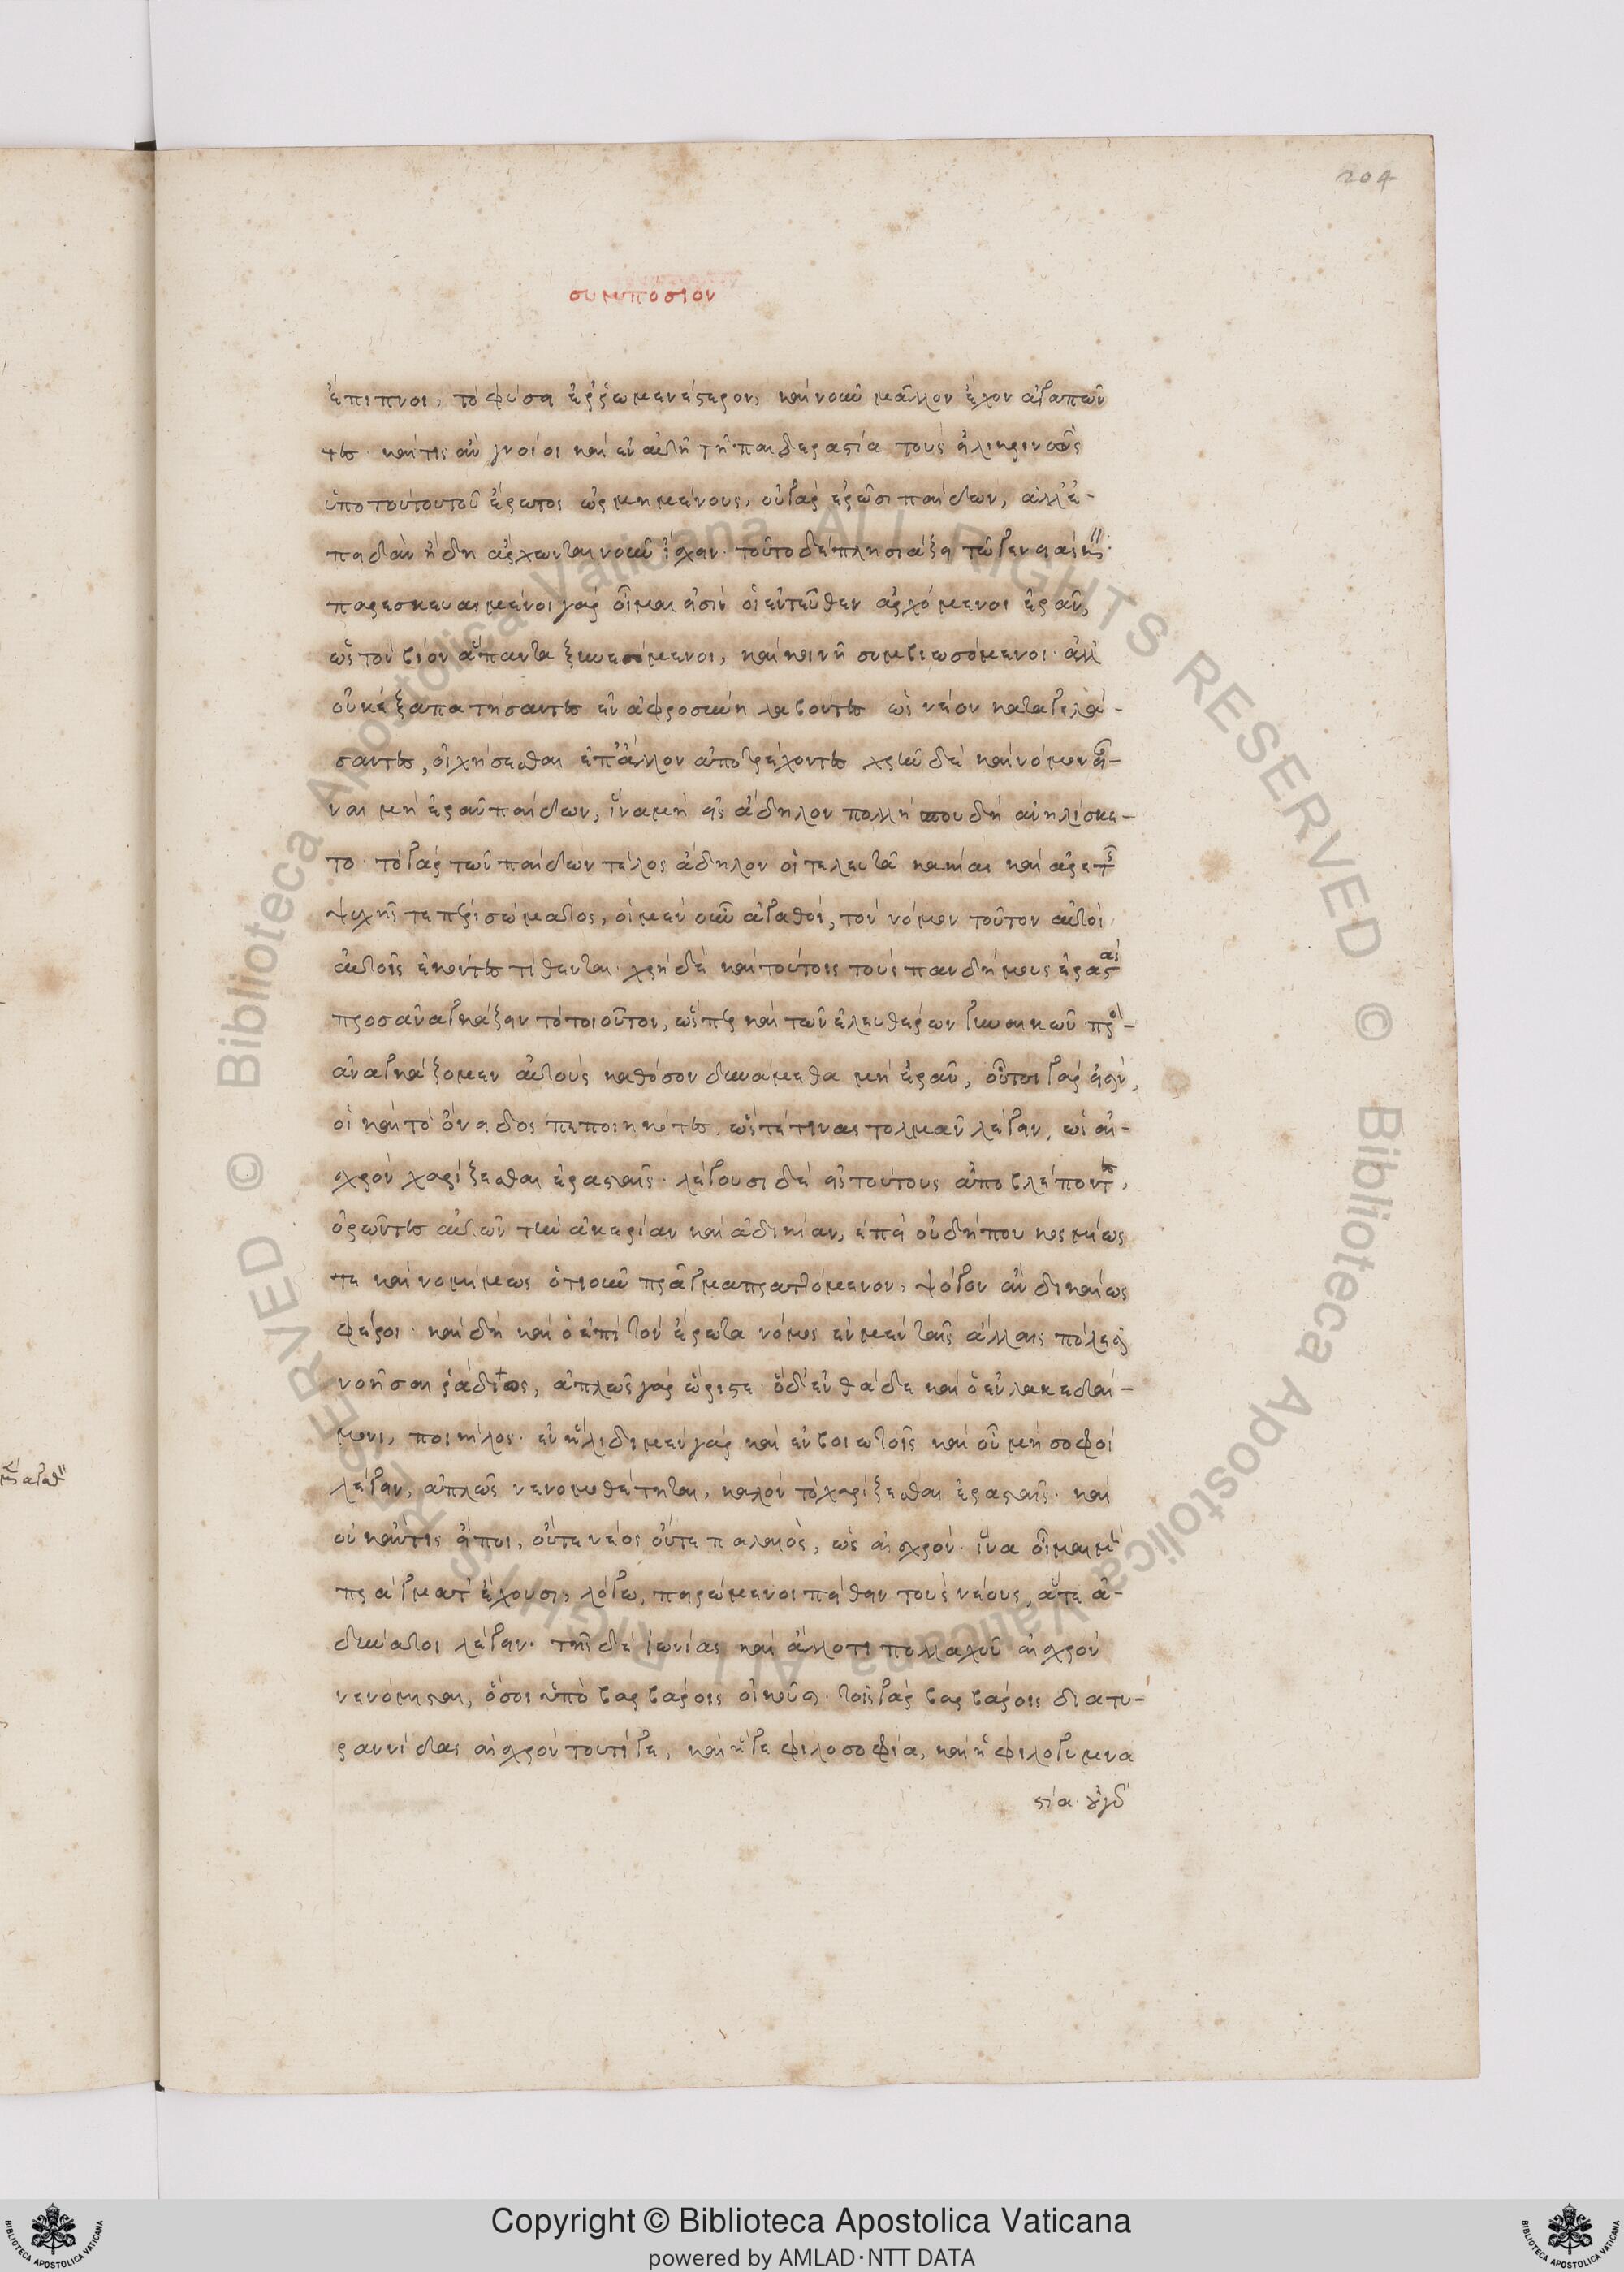 204
συμποσιον
ἐπιπνοι, τὸ φύσει ἐῤῥωμενέστερον, καὶ νοῦν μᾶλλον ἔχον ἀγαπῶν
τες. καί τις ἂν γνοίοι καὶ ἐν αὐτῇ τῇ παιδεραστία τοὺς εἰλικρινῶς
ὑπὸ τούτου τοῦ ἔρωτος ὡρμημένους, οὐ γὰρ ἐρῶσι παίδων, ἀλλ' ἐ-
πειδὰν ἤδη ἄρχωνται νοῦν ἴσχειν. τοῦτο δὲ πλησιάζει τῶ γενειάσκειν.
παρεσκευασμένοι γὰρ οἶμαι εἰσὶν οἱ ἐντεῦθεν ἀρχόμενοι ἐρᾶν,
ὡς τὸν βίον ἅπαντα ξυνεσόμενοι, καὶ κοινῇ συμβιωσόμενοι. ἀλλ'
οὐκ ἐξαπατήσαντες ἐν ἀφροσύνη λαβόντες ὡς νέον καταγελά-
σαντες, οἰχήσεσθαι ἐπ' ἄλλον ἀποτρέχοντες χρῆν δὲ καὶ νόμον εἶ-
ναι μὴ ἐρᾶν παίδων, ἵνα μὴ εἰς ἄδηλον πολλὴ σπουδὴ ἀνηλίσκε-
το. τὸ γὰρ τῶν παίδων τέλος ἄδηλον οἷ τελευτᾶ κακίας καὶ ἀρετῆς
ψυχῆς τε πέρι σώματος, οἱ μὲν οὖν ἀγαθοί, τὸν νόμον τοῦτον αὐτοὶ
αὐτοῖς ἑκόντες τίθενται. χρὴ δὲ καὶ τούτοις τοὺς πανδήμους ἐραστὰς
προσαναγκάζειν τὸ τοιοῦτον, ὥσπερ καὶ τῶν ἐλευθέρων γυναικῶν προς-
αναγκάζομεν αὐτοὺς καθόσον δυνάμεθα μὴ ἐρᾶν, οὗτοι γάρ εἰσιν,
οἱ καὶ τὸ ὄνειδος πεποιηκότες, ὥστέ τινας τολμᾶν λέγειν, ὡς αἰ-
σχρὸν χαρίζεσθαι ἐρασταῖς. λέγουσι δὲ εἰς τούτους ἀποβλέποντες,
ὁρῶντες αὐτῶν τὴν ἀκαιρίαν καὶ ἀδικίαν, ἐπεὶ οὐ δήπου κοσμίως
τε καὶ νομίμως ὁτιοῦν πρᾶγμα πραττόμενον, ψόγον ἂν δικαίως
φέροι. καὶ δὴ καὶ ὁ ἐπὶ τὸν ἔρωτα νόμος ἐν μὲν ταῖς ἄλλαις πόλεσι
νοῆσαι ῥάδιος, ἁπλῶς γὰρ ὥρισται. ὁ δ' ἐνθάδε καὶ ὁ ἐν λακεδαί-
μονι, ποικίλος. ἐν ἤλιδι μὲν γὰρ καὶ ἐν βοιωτοῖς καὶ οὗ μὴ σοφοὶ
λέγειν, ἁπλῶς νενομοθέτηται, καλὸν τὸ χαρίζεσθαι ἐρασταῖς. καὶ
οὐκ ἄν τις εἴποι, οὔτε νέος οὔτε παλαιὸς, ὡς αἰσχρόν. ἵνα οἶμαι μὴ
πράγματ' ἔχουσι, λόγω, πειρώμενοι πείθειν τοὺς νέους, ἅτε ἀ-
δύνατοι λέγειν. τῆς δὲ ἰωνίας καὶ ἄλλοτι πολλαχοῦ αἰσχρὸν
νενόμισται, ὅσοι ὑπὸ βαρβάροις οἰκοῦσι. τοῖς γὰρ βαρβάροις διὰ τυ-
ραννίδας αἰσχρὸν τουτί γε, καὶ ἥ γε φιλοσοφία, καὶ ἡ φιλογυμνα
στία. οὐ γὰρ